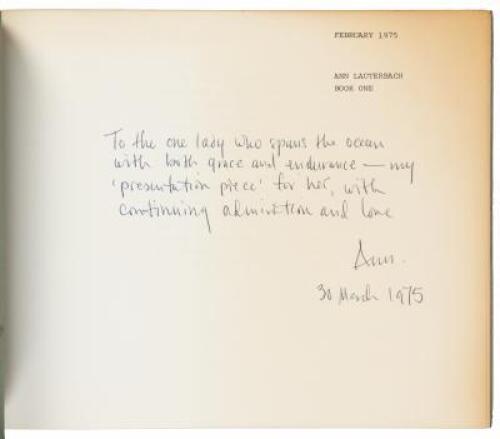 FEBRUARY 1975
ANN LAUTERBACH
BOOK ONE
To the one lady who spans the ocean
with both grace and endurance — my
'presentation piece' for her, with
continuing admiration and love
Ann.
30 March 1975